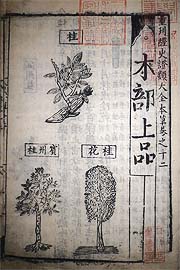 重刊經史證類大全本草卷之十二
木部上品
桂
桂花
賓州桂